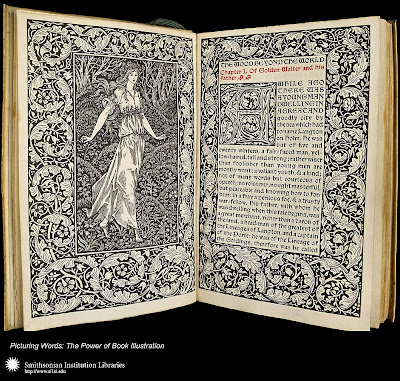 THE WOOD BEYOND THE WORLD
Chapter I. Of Golden Walter and his
Father.
AWHILE AGO
THERE WAS
A YOUNG MAN
DWELLING IN
A GREAT AND
goodly city by
the sea which had
to name Langton
on Holm. He was
but of five and
twenty winters, a fair-faced man, yel-
low-haired, tall and strong; rather wiser
than foolisher than young men are
mostly wont; a valiant youth, & a kind;
not of many words but courteous of
speech; no roisterer, nought masterful,
but peaceable and knowing how to for-
bear: in a fray a perilous foe, & a trusty
war-fellow. His father, with whom he
was dwelling when this tale begins, was
a great merchant, richer than a baron of
the land, a head-man of the greatest of
the Lineages of Langton, and a captain
of the Porte; he was of the Lineage of
the Goldings, therefore was he called
Picturing Words: The Power of Book Illustration
Smithsonian Institution Libraries
http://www.sil.si.edu